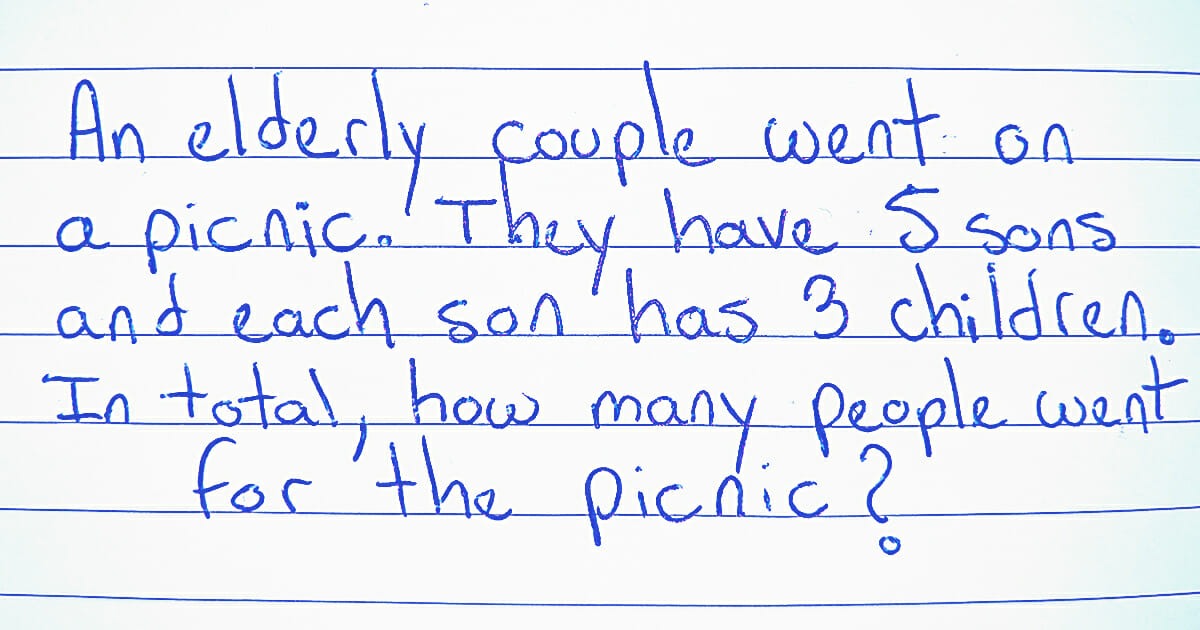 An elderly couple went on
a picnic. They have 5 sons
and each son has 3 children.
In total, how many people went
for the picnic?